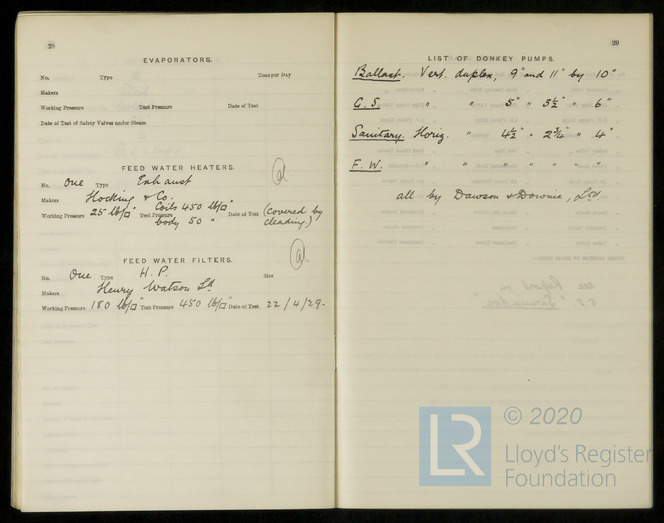 28
EVAPORATORS.
No. Type Tons per Day
Makers
Working Pressure Test Pressure Date of Test
Date of Test of Safety Valves under Steam
FEED WATER HEATERS.
No. One Type Exhaust
Makers Hocking & Co.
Working Pressure 25 lb/□" Test Pressure Coils 450 lb/□" body 50 " Date of Test (covered by cleading.)
FEED WATER FILTERS.
No. One Type H.P. Size
Makers Henry Watson Ld
Working Pressure 180 lb/□" Test Pressure 450 lb/□" Date of Test 22/4/29.
29
LIST OF DONKEY PUMPS.
Ballast. Vert. duplex, 9" and 11" by 10"
G.S. " " 5" " 5½" " 6"
Sanitary. Horiz. " 4½" " 2¾" " 4"
F.W. " " " " " "
all by Dawson & Downie, Ltd
© 2020
LR
Lloyd's Register
Foundation